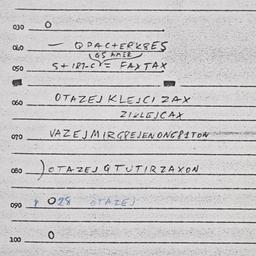 030 O
040 — QPACTERKBES
GSAMER
050 S+187-C = FAXTAX
060 OTAZEJ KLEJCI ZAX
ZIKLEJCAX
070 VAZEJMIRGPEJENONGPITON
080 )OTAZEJ GTUTIRZAXON
090 028 OTAZEJ
100 O